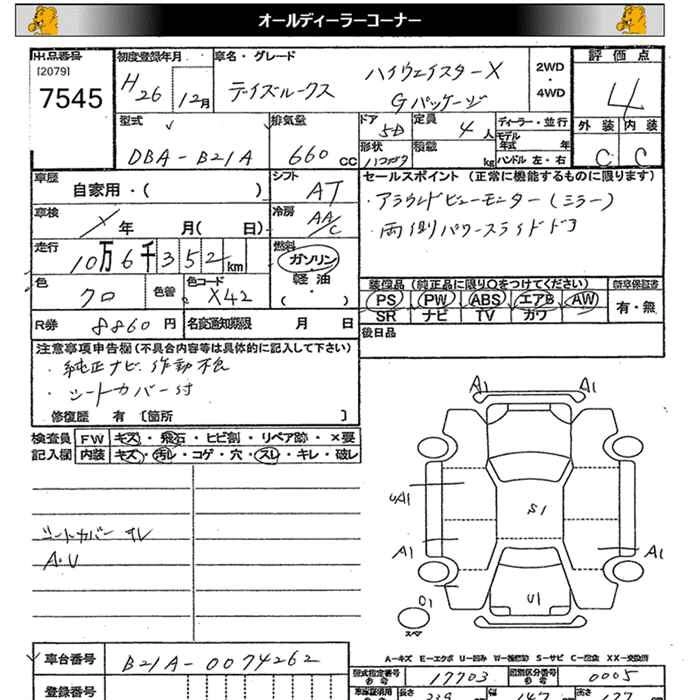 オールディーラーコーナー
出品番号
[2079]
7545
初度登録年月
H26 12月
車名・グレード
デイズルークス ハイウェイスターX
Gパッケージ
2WD
・
4WD
評価点
4
外装 内装
C C
型式
DBA-B21A
排気量
660 CC
ドア
5D
定員
4 人
形状
積載
kg
ディーラー・並行
モデル年式 年
ハンドル 左・右
車歴
自家用・( )
シフト
AT
セールスポイント (正常に機能するものに限ります)
・アラウンドビューモニター(ミラー)
・両側パワースライドドア
車検
年 月( 日)
冷房
AAC
走行
10万6千352km
燃料
ガソリン
軽油
・
( )
色
クロ
色替
色コード
X42
装備品(純正品に限り○をつけてください)
PS PW ABS エアB AW
SR ナビ TV カワ
新車保証書
有・無
R券 8860円
名変通知期限 月 日
後日品
注意事項申告欄(不具合内容等は具体的に記入して下さい)
・純正ナビ作動不良
・シートカバー付
修復歴 有 [箇所 ]
検査員
記入欄
FW キズ・飛石・ヒビ割・リペア跡・×要
内装 キズ・汚レ・コゲ・穴・スレ・キレ・破レ
A1 A1
UA1
S1
A1 A1
U1
01
スペア
シートカバー
A・U
A-キズ E-エクボ U-凹み W-補修跡 S-サビ C-腐食 XX-交換済
車台番号 B21A-0074262
登録番号
型式指定番号 17703
類別区分番号 0005
長さ 339
幅 147
高さ 177